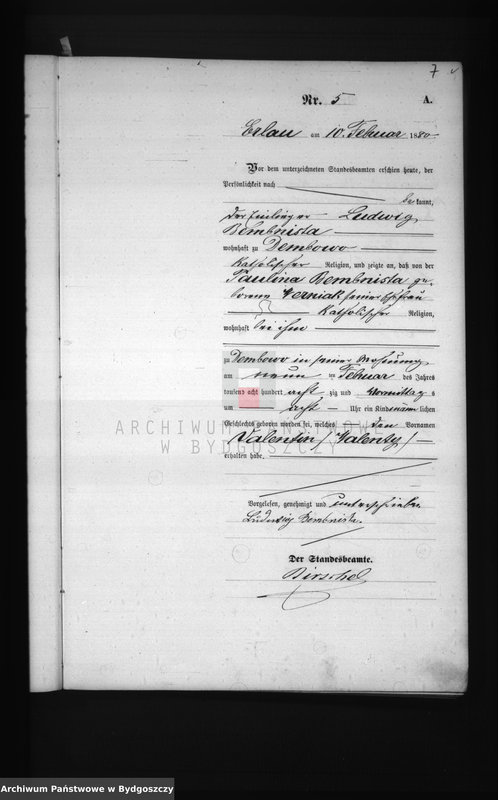 7
Nr. 5 A.
Erlau am 10. Februar 1880
Vor dem unterzeichneten Standesbeamten erschien heute, der
Persönlichkeit nach
be kannt,
der Einlieger Ludwig
Bembnista
wohnhaft zu Dembowo
katholischer Religion, und zeigte an, daß von der
Paulina Bembnista ge-
borene seiner Ehefrau
katholischer Religion,
wohnhaft bei ihm
zu Dembowo in seiner Wohnung
am neun ten Februar des Jahres
tausend acht hundert acht zig und Vormittag s
um acht Uhr ein Kind männ lichen
Geschlechts geboren worden sei, welches den Vornamen
Valentin /Valenty/
erhalten habe,
Vorgelesen, genehmigt und unterschrieben
Ludwig Bembnista.
Der Standesbeamte.
ARCHIWUM PAŃSTWOWE
W BYDGOSZCZY
Archiwum Państwowe w Bydgoszczy